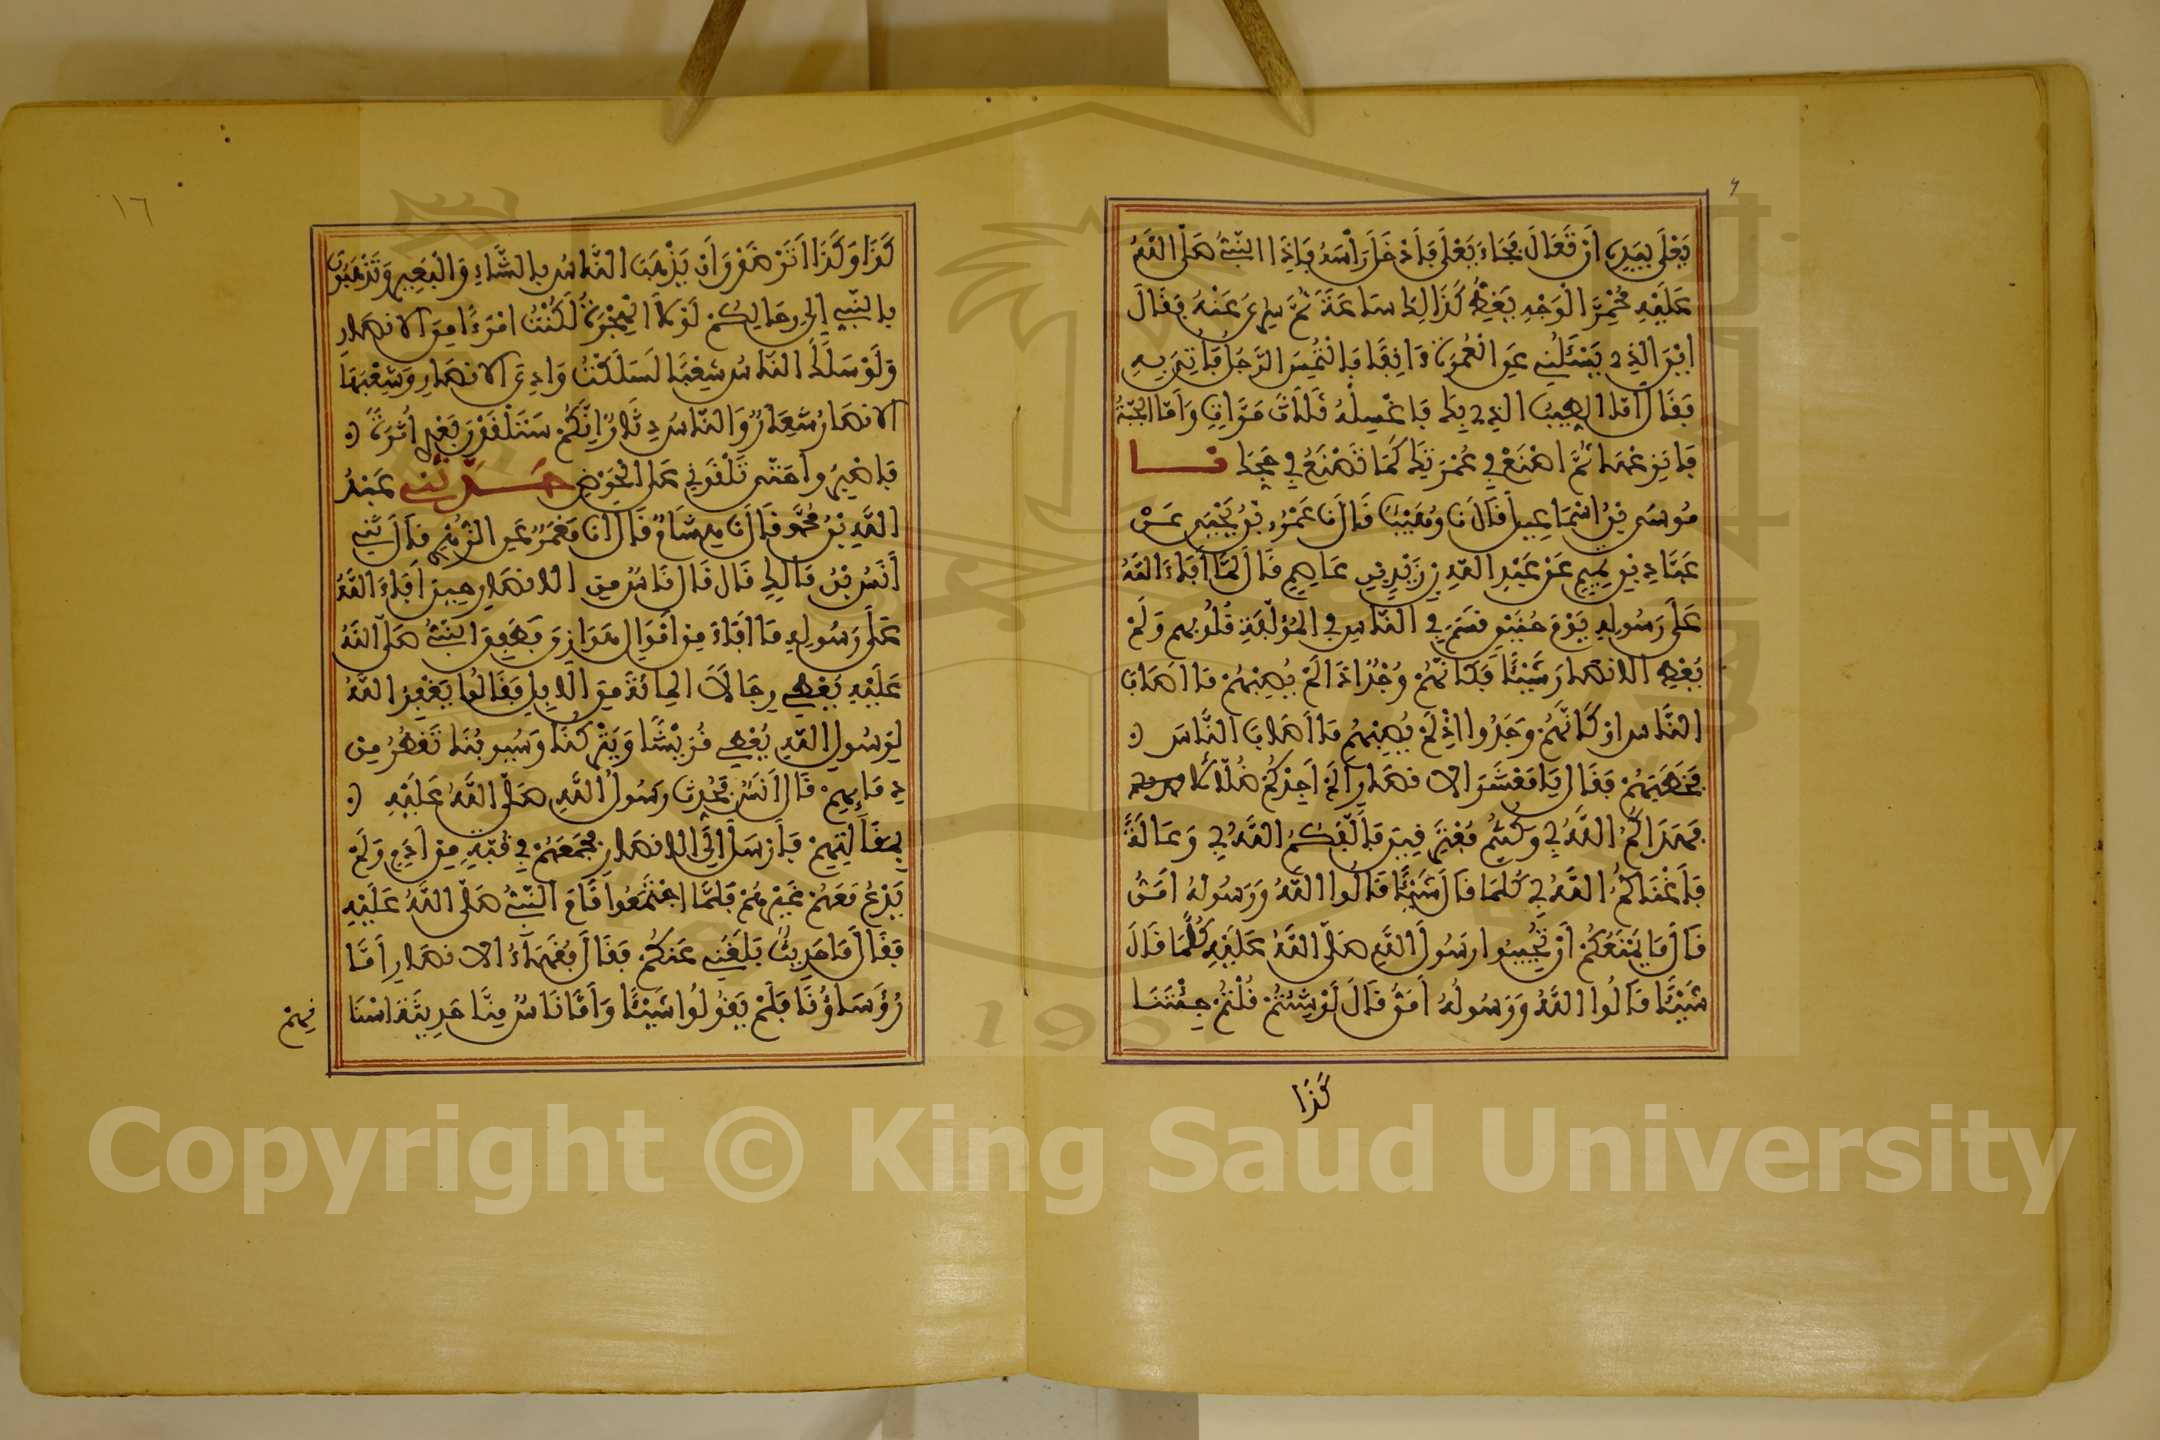 يَعْلَى بِيَدِهِ أَنْ تَعَالَ فَجَاءَ يَعْلَى فَأَدْخَلَ رَأْسَهُ فَإِذَا النَّبِيُّ صَلَّى اللَّهُ
عَلَيْهِ مُحْمَرُّ الْوَجْهِ يَغِطُّ كَذَلِكَ سَاعَةً ثُمَّ سُرِّيَ عَنْهُ فَقَالَ
أَيْنَ الَّذِي يَسْأَلُنِي عَنِ الْعُمْرَةِ ءَانِفًا فَالْتُمِسَ الرَّجُلُ فَأُتِيَ بِهِ
فَقَالَ أَمَّا الطِّيبُ الَّذِي بِكَ فَاغْسِلْهُ ثَلَاثَ مَرَّاتٍ وَأَمَّا الْجُبَّةُ
فَانْزِعْهَا ثُمَّ اصْنَعْ فِي عُمْرَتِكَ كَمَا تَصْنَعُ فِي حَجِّكَ نـا
مُوسَى بْنُ إِسْمَاعِيلَ قَالَ نَا وُهَيْبٌ قَالَ نَا عَمْرُو بْنُ يَحْيَى عَنْ
عَبَّادِ بْنِ تَمِيمٍ عَنْ عَبْدِ اللَّهِ بْنِ زَيْدِ بْنِ عَاصِمٍ قَالَ لَمَّا أَفَاءَ اللَّهُ
عَلَى رَسُولِهِ يَوْمَ حُنَيْنٍ قَسَمَ فِي النَّاسِ فِي الْمُؤَلَّفَةِ قُلُوبُهُمْ وَلَمْ
يُعْطِ الْأَنْصَارَ شَيْئًا فَكَأَنَّهُمْ وُجُدٌ إِذْ لَمْ يُصِبْهُمْ مَا أَصَابَ
النَّاسَ أَوْ كَأَنَّهُمْ وَجَدُوا إِذْ لَمْ يُصِبْهُمْ مَا أَصَابَ النَّاسَ
فَخَطَبَهُمْ فَقَالَ يَا مَعْشَرَ الْأَنْصَارِ أَلَمْ أَجِدْكُمْ ضُلَّالًا
فَهَدَاكُمُ اللَّهُ بِي وَكُنْتُمْ مُتَفَرِّقِينَ فَأَلَّفَكُمُ اللَّهُ بِي وَعَالَةً
فَأَغْنَاكُمُ اللَّهُ بِي كُلَّمَا قَالَ شَيْئًا قَالُوا اللَّهُ وَرَسُولُهُ أَمَنُّ
قَالَ مَا يَمْنَعُكُمْ أَنْ تُجِيبُوا رَسُولَ اللَّهِ صَلَّى اللَّهُ عَلَيْهِ كُلَّمَا قَالَ
شَيْئًا قَالُوا اللَّهُ وَرَسُولُهُ أَمَنُّ قَالَ لَوْ شِئْتُمْ قُلْتُمْ جِئْتَنَا
كَذَا
١٦
كَذَا وَكَذَا أَتَرْضَوْنَ أَنْ يَذْهَبَ النَّاسُ بِالشَّاةِ وَالْبَعِيرِ وَتَذْهَبُونَ
بِالنَّبِيِّ إِلَى رِحَالِكُمْ لَوْلَا الْهِجْرَةُ لَكُنْتُ امْرَءًا مِنَ الْأَنْصَارِ
وَلَوْ سَلَكَ النَّاسُ شِعْبًا لَسَلَكْتُ وَادِيَ الْأَنْصَارِ وَشِعْبَهَا
الْأَنْصَارُ شِعَارٌ وَالنَّاسُ دِثَارٌ إِنَّكُمْ سَتَلْقَوْنَ بَعْدِي أُثْرَةً
فَاصْبِرُوا حَتَّى تَلْقَوْنِي عَلَى الْحَوْضِ حَدَّثَنِي عَبْدُ
اللَّهِ بْنُ مُحَمَّدٍ قَالَ نَا هِشَامٌ قَالَ أَنَا مَعْمَرٌ عَنِ الزُّهْرِيِّ قَالَ ثَنِي
أَنَسُ بْنُ مَالِكٍ قَالَ قَالَ نَاسٌ مِنَ الْأَنْصَارِ حِينَ أَفَاءَ اللَّهُ
عَلَى رَسُولِهِ مَا أَفَاءَ مِنْ أَمْوَالِ هَوَازِنَ فَطَفِقَ النَّبِيُّ صَلَّى اللَّهُ
عَلَيْهِ يُعْطِي رِجَالًا الْمِائَةَ مِنَ الْإِبِلِ فَقَالُوا يَغْفِرُ اللَّهُ
لِرَسُولِ اللَّهِ يُعْطِي قُرَيْشًا وَيَتْرُكُنَا وَسُيُوفُنَا تَقْطُرُ مِنْ
دِمَائِهِمْ قَالَ أَنَسٌ فَحُدِّثَ رَسُولُ اللَّهِ صَلَّى اللَّهُ عَلَيْهِ
بِمَقَالَتِهِمْ فَأَرْسَلَ إِلَى الْأَنْصَارِ فَجَمَعَهُمْ فِي قُبَّةٍ مِنْ أَدَمٍ وَلَمْ
يَدْعُ مَعَهُمْ غَيْرَهُمْ فَلَمَّا اجْتَمَعُوا قَامَ النَّبِيُّ صَلَّى اللَّهُ عَلَيْهِ
فَقَالَ مَا حَدِيثٌ بَلَغَنِي عَنْكُمْ فَقَالَ فُقَهَاءُ الْأَنْصَارِ أَمَّا
رُؤَسَاؤُنَا فَلَمْ يَقُولُوا شَيْئًا وَأَمَّا نَاسٌ مِنَّا حَدِيثَةٌ أَسْنَا
نهم
Copyright © King Saud University
1957